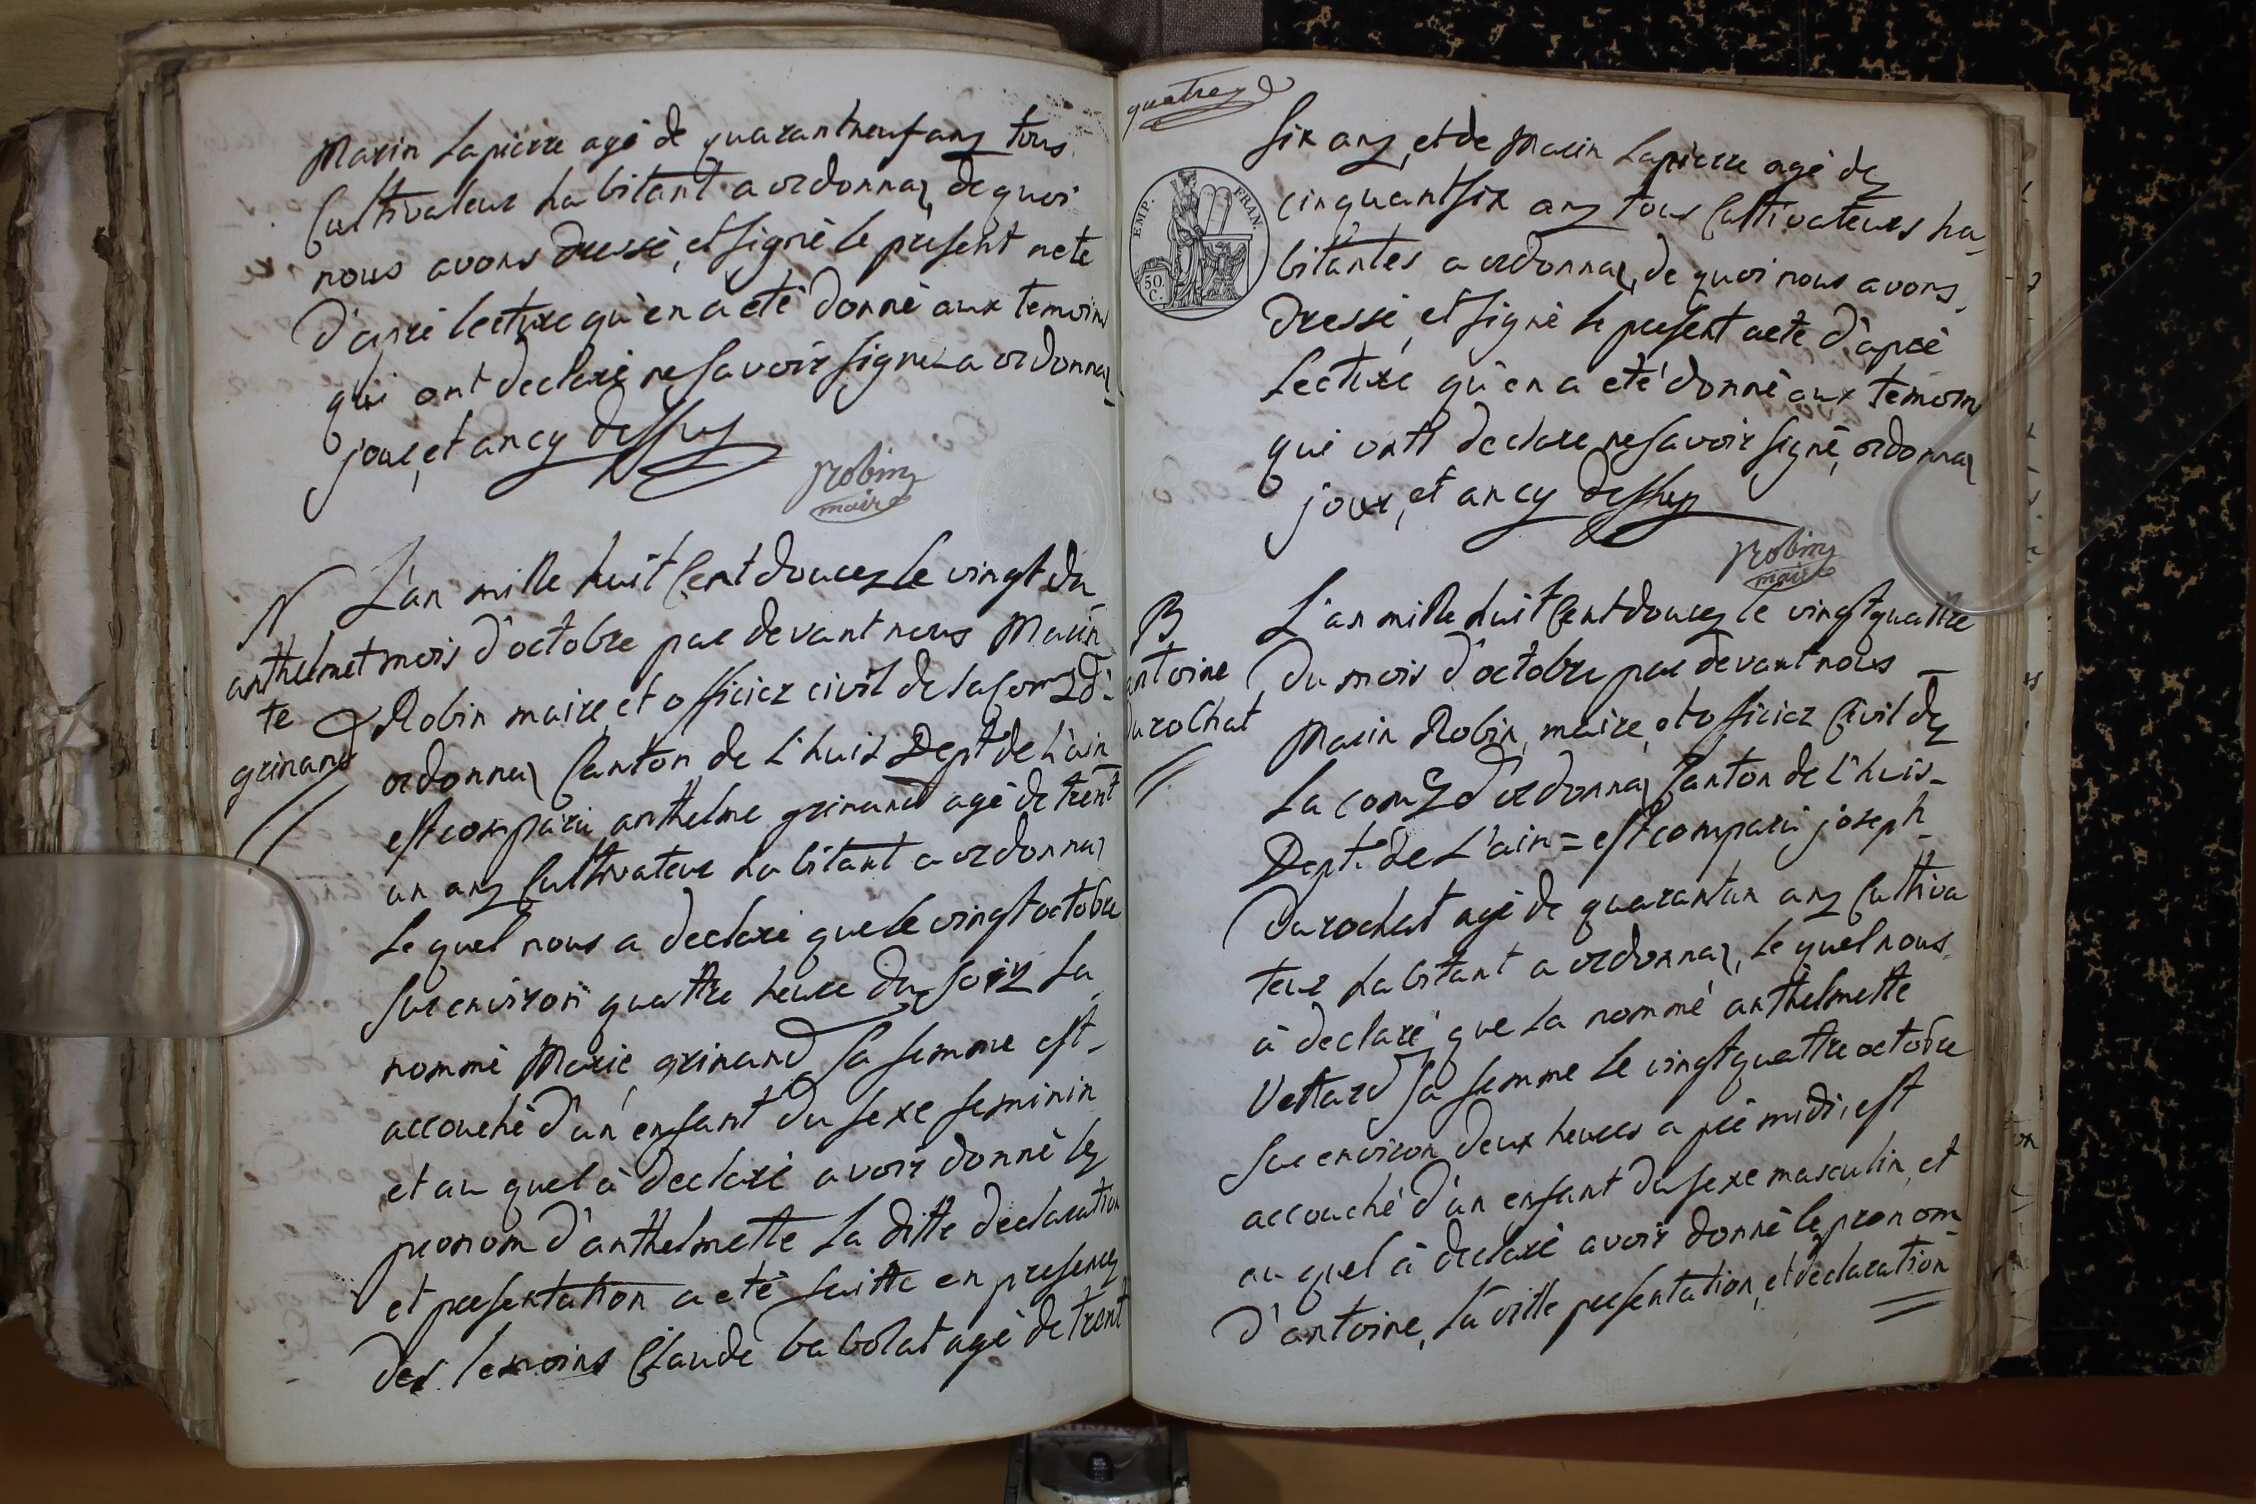 Marin Lapierre agé de quarantneuf any tous
Cultivateur habitant a ordonnaz, de quoi
nous avons dressé, et signé le présent acte
d'apré lecture qu'en a eté donné aux temoins
qui ont declaré ne savoir signer a ordonnaz
jour, et an cy dessus
Robin
maire
N
anthelmet
te
grinand
L'an mille huit Cent douzes le vingt du
mois d'octobre par devant nous Marin
Robin maire, et officiez civil de la com d'
ordonnaz Canton de L'huis Dept de L'ain
est comparu anthelme grinand agé de trent
un any Cultivateur habitant a ordonnaz
Le quel nous a declaré que le vingt octobre
sur environ quattre heure du soir La
nommé Marie grinand sa femme est
accouché d'un enfant du sexe feminin
et au quel à declaré avoir donné le
pronom d'anthelmette La ditte declaration
et presentation a eté faitte en presence
des temoins Claude babolat agé de trent
quatre
EMP. FRAN.
50.
C.
six any, et de Marin Lapierre agé de
cinquantsix any tous Cultivateurs ha
bitantes a ordonnaz, de quoi nous avons
dressé, et signé le present acte d'apré
Lecture qu'en a eté donné aux temoins
qui ontt declare ne savoir signé, ordonnaz
jour, et an cy dessus
Robin
maire
B
antoine
durochat
L'an mille huit Cent douzes le vingtquattre
du mois d'octobre par devant nous
Marin Robin, maire, et officiez Civil de
La com d'ordonnaz Canton de L'huis
Dept. de L'ain = est comparu joseph
durochat agé de quarantun any Cultiva
teur habitant a ordonnaz, le quel nous
à declaré que la nommé anthelmette
Vettard sa femme le vingtquattre octobre
sur environ deux heures a pré midi, est
accouché d'un enfant du sexe masculin, et
au quel à declaré avoir donné le pronom
d'antoine, La ditte presentation, et declaration